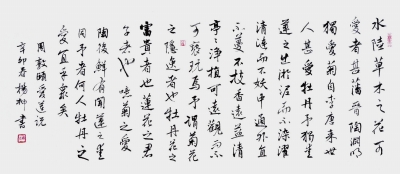 水陸草木之花可
愛者甚蕃晉陶淵明
獨愛菊自李唐來世
人甚愛牡丹予獨愛
蓮之出淤泥而不染濯
清漣而不妖中通外直
不蔓不枝香遠益清
亭亭淨植可遠觀而不
可褻玩焉予謂菊花
之隱逸者也牡丹花之
富貴者也蓮花之君
子者也噫菊之愛
陶後鮮有聞蓮之愛
同予者何人牡丹之
愛宜乎衆矣
周敦頤愛蓮說
辛卯春楊柳書